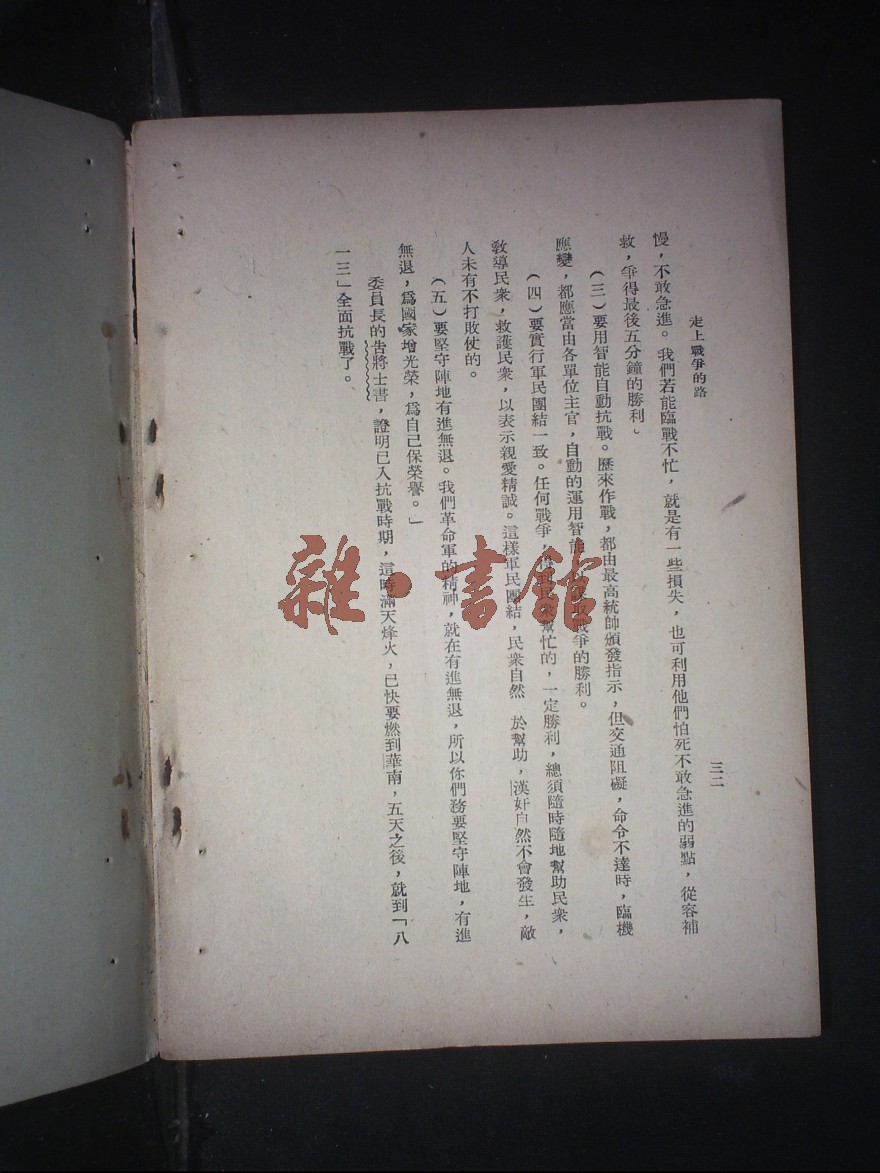 走上戰爭的路
三二
慢，不敢急進。我們若能臨戰不忙，就是有一些損失，也可利用他們怕死不敢急進的弱點，從容補
救，爭得最後五分鐘的勝利。
（三）要用智能自動抗戰。歷來作戰，都由最高統帥頒發指示，但交通阻礙，命令不達時，臨機
應變，都應當由各單位主官，自動的運用智能，取戰爭的勝利。
（四）要實行軍民團結一致。任何戰爭，民眾幫忙的，一定勝利，總須隨時隨地幫助民衆，
教導民衆，救護民衆，以表示親愛精誠。這樣軍民團結，民衆自然 於幫助，漢奸自然不會發生，敵
人未有不打敗仗的。
（五）要堅守陣地有進無退。我們革命軍的精神，就在有進無退，所以你們務要堅守陣地，有進
無退，爲國家增光榮，爲自己保榮譽。」
委員長的吿將士書，證明已入抗戰時期，這時滿天烽火，已快要燃到華南，五天之後，就到「八
一三」全面抗戰了。
雜·書館